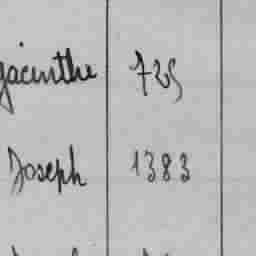 yacinthe 725
Joseph 1383